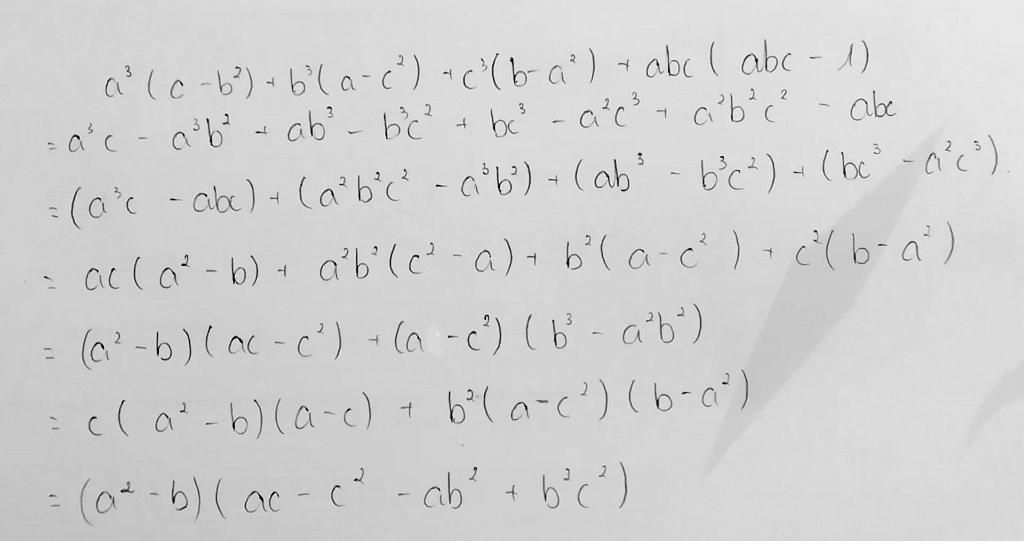 a³(c-b²)+b³(a-c²)+c³(b-a²)+abc(abc-1)
=a³c - a³b² + ab³ - b³c² + bc³ - a²c³ + a²b²c² - abc
=(a³c - abc)+(a²b²c² - a³b²)+(ab³ - b³c²)+(bc³ - a²c³).
= ac(a² - b) + a²b²(c² - a) + b²(a - c²) + c²(b - a²)
= (a² - b)(ac - c²) + (a - c²)(b³ - a²b²)
= c(a² - b)(a - c) + b²(a - c²)(b - a²)
= (a² - b)(ac - c² - ab² + b²c²)